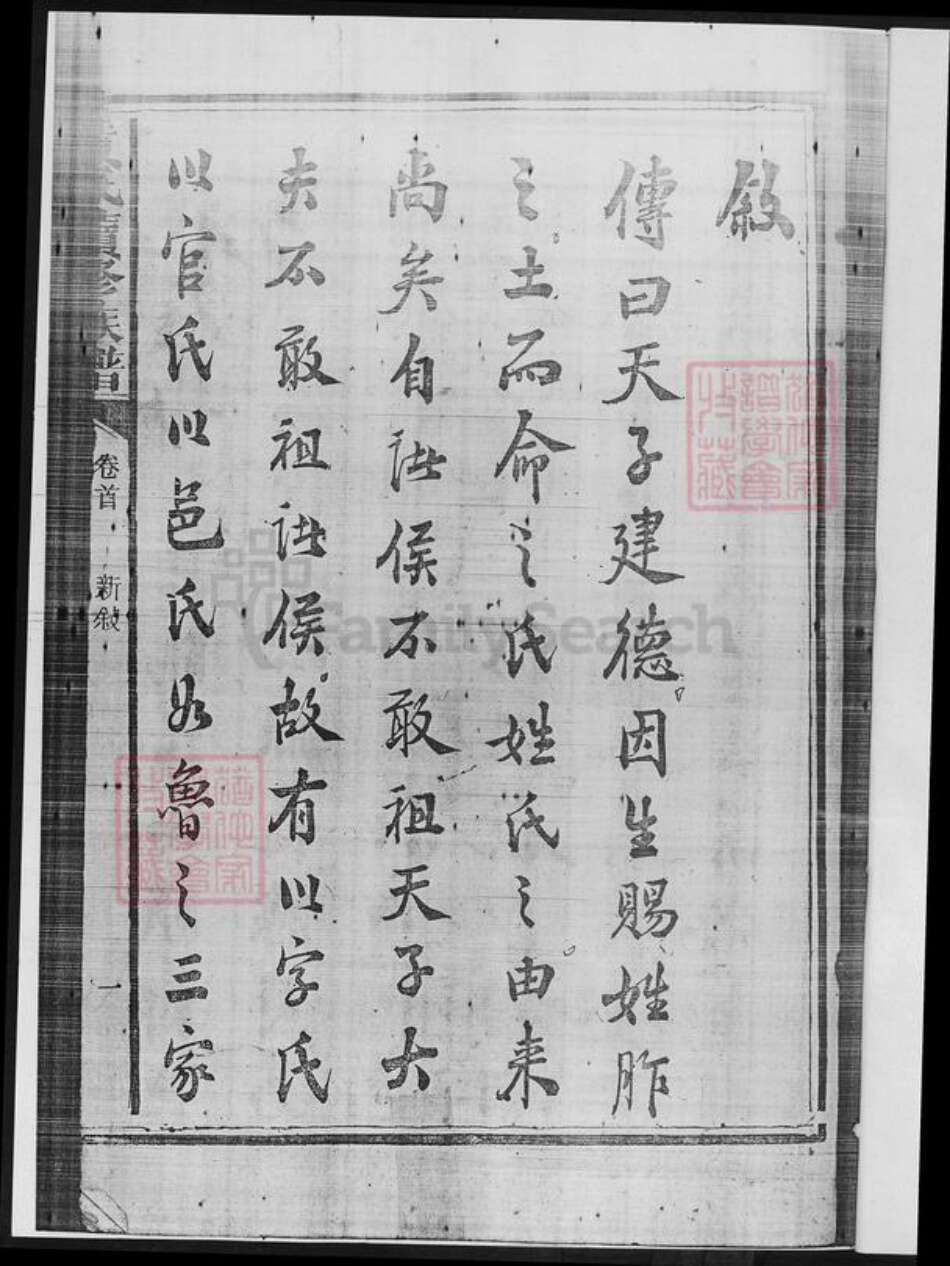 敘
傳曰天子建德因生賜姓胙
之土而命之氏姓氏之由来
尚矣自諸侯不敢祖天子大
夫不敢祖諸侯故有以字氏
以官氏以邑氏如魯之三家
氏續修族譜
卷首
新敘
一
FamilySearch